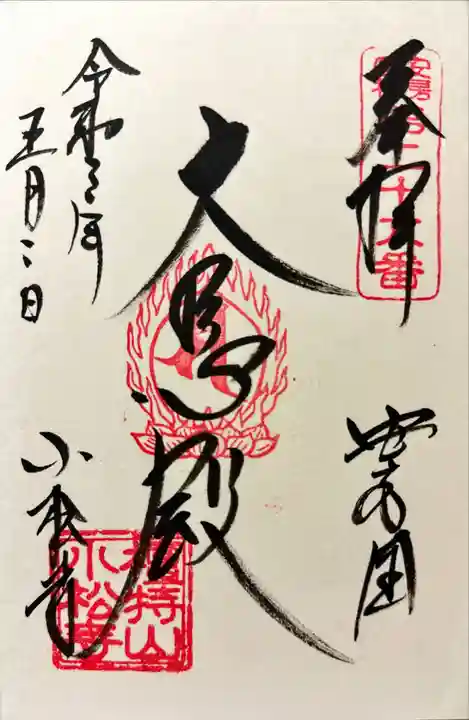 奉拝
二十六番
安房国
大悲殿
檀特山
小松寺
令和三年
五月二日
小松寺